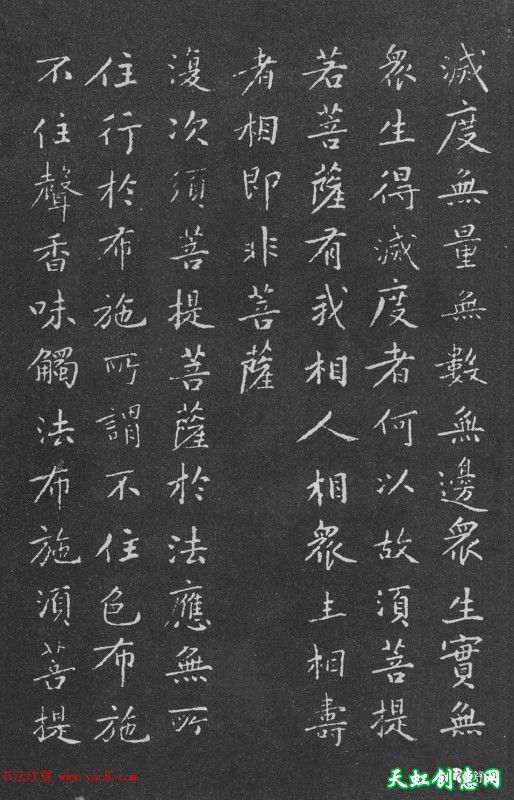 滅度無量無數無邊眾生實無
眾生得滅度者何以故須菩提
若菩薩有我相人相眾生相壽
者相即非菩薩
復次須菩提菩薩於法應無所
住行於布施所謂不住色布施
不住聲香味觸法布施須菩提
书法欣赏 www.yac8.com
天虹创意网